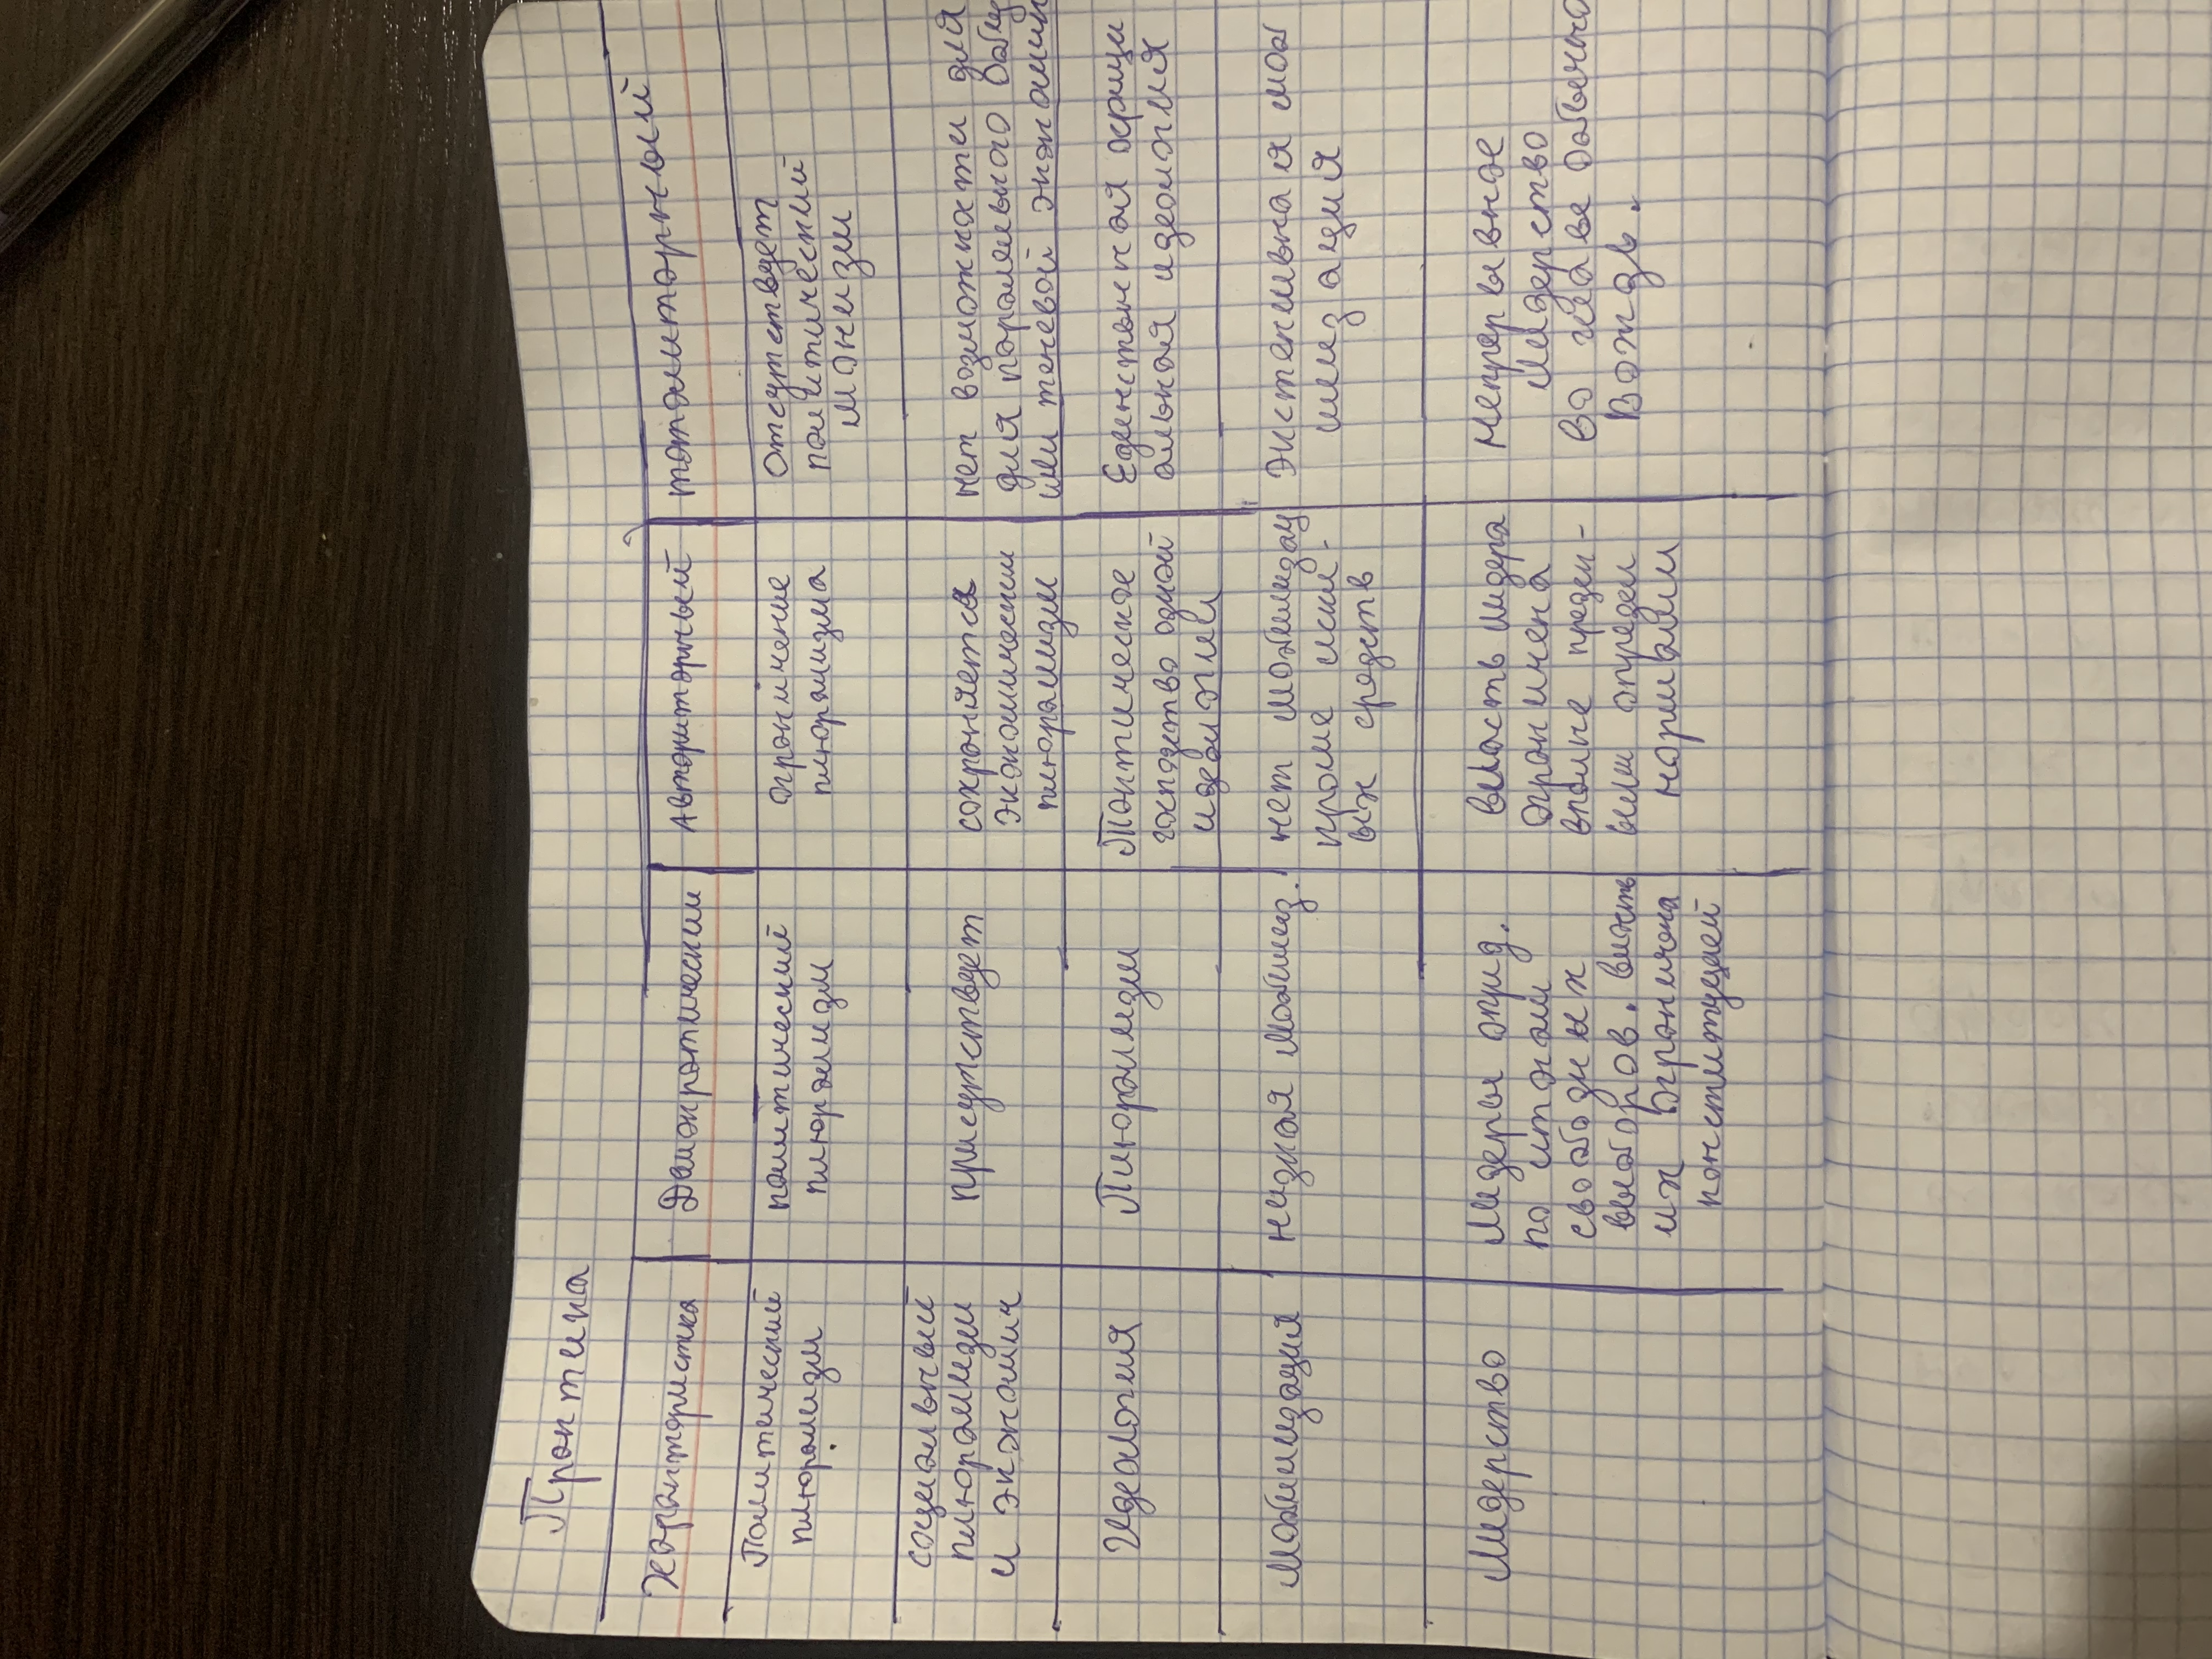 Практика
Характеристика
Демократический
Авторитарный
тоталитарный
Политический
плюрализм.
политический
плюрализм
ограничение
плюрализма
Отсутствует
политический
монизм
социальный
плюрализм
и экономич
присутствует
сохраняется
экономический
плюрализм
нет возможности для
для паралельного
или теневой экономик
Идеология
Плюрализм
господство одной
идеологии
альной идеология
Мобилизация
низкая мобилиз.
нет мобилизац
кроме
ых средств
Экстенсивная моб
илизация
Лидерство
Лидеры опред.
по итогам
свободных
выборов. власть
их ограничена
конституцией
власть лидера
ограничена
вполне предск-
нормами
Непрерывное
лидерство
Во главе обычно
Вождь.